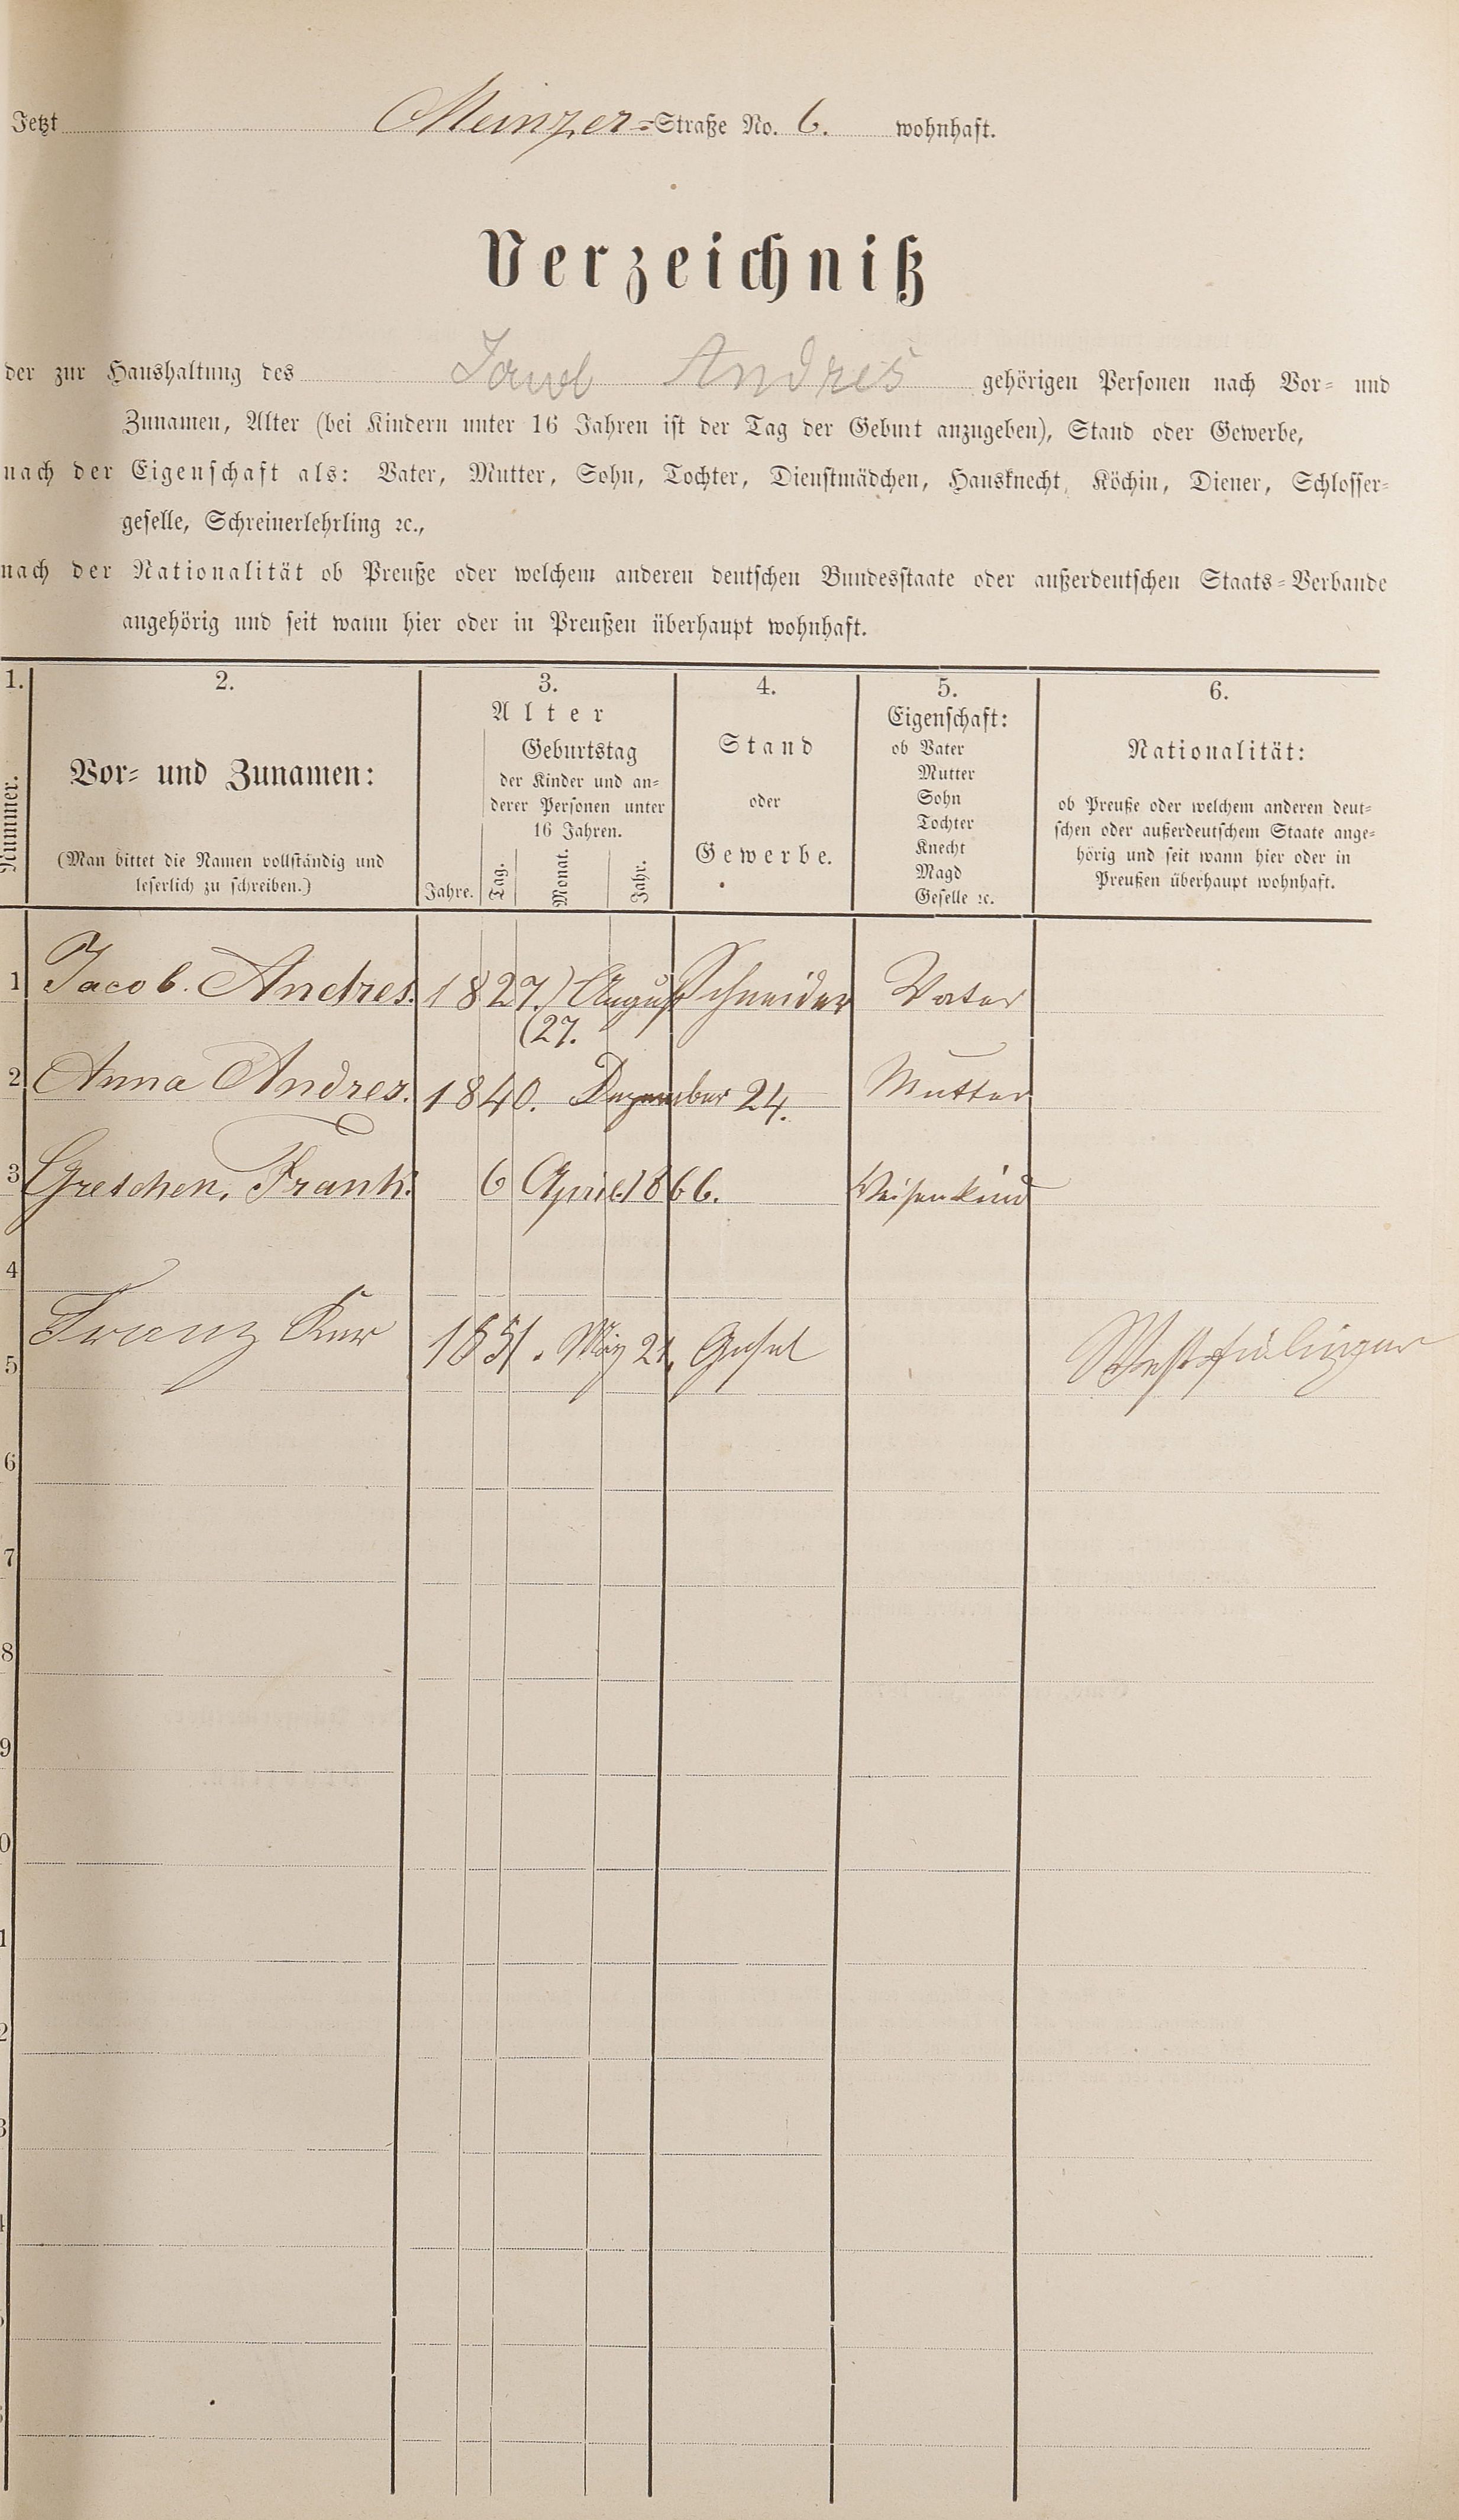 Jetzt Meinzer=Straße No. 6. wohnhaft.
Verzeichniß
der zur Haushaltung des Jacob Andres gehörigen Personen nach Vor= und
Zunamen, Alter (bei Kindern unter 16 Jahren ist der Tag der Geburt anzugeben), Stand oder Gewerbe,
nach der Eigenschaft als: Vater, Mutter, Sohn, Tochter, Dienstmädchen, Hausknecht, Köchin, Diener, Schlosser=
geselle, Schreinerlehrling ꝛc.,
nach der Nationalität ob Preuße oder welchem anderen deutschen Bundesstaate oder außerdeutschen Staats=Verbande
angehörig und seit wann hier oder in Preußen überhaupt wohnhaft.
1.
Nummer.
2.
Vor= und Zunamen:
(Man bittet die Namen vollständig und
leserlich zu schreiben.)
3.
Alter
Jahre.
Geburtstag
der Kinder und an=
derer Personen unter
16 Jahren.
Tag.
Monat.
Jahr.
4.
Stand
oder
Gewerbe.
5.
Eigenschaft:
ob Vater
Mutter
Sohn
Tochter
Knecht
Magd
Geselle ꝛc.
6.
Nationalität:
ob Preuße oder welchem anderen deut=
schen oder außerdeutschem Staate ange=
hörig und seit wann hier oder in
Preußen überhaupt wohnhaft.
1 Jacob. Andres. 1827.) August Schneider Vater
(27.
2 Anna Andres. 1840. Dezember 24. Mutter
3 Gretchen. Frank. 6 April. 1866. Weisenkind
4
5 Franz 1851. 21. Gesel
6
7
8
9
0
1
2
3
4